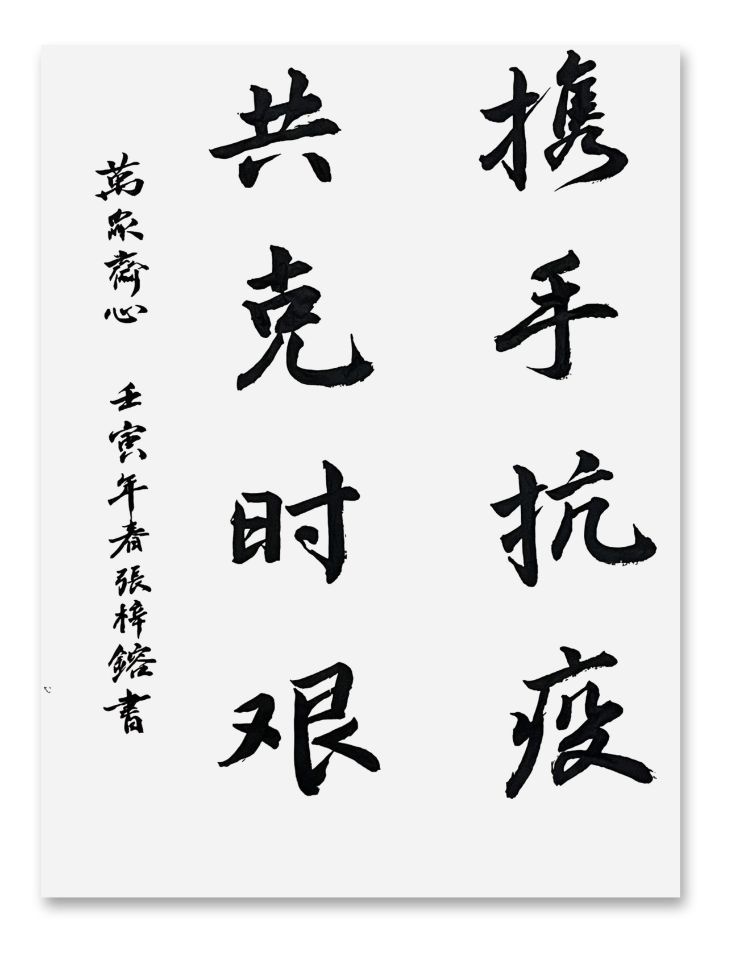 携手抗疫
共克时艰
萬众齋心 壬寅年春張梓鎔書